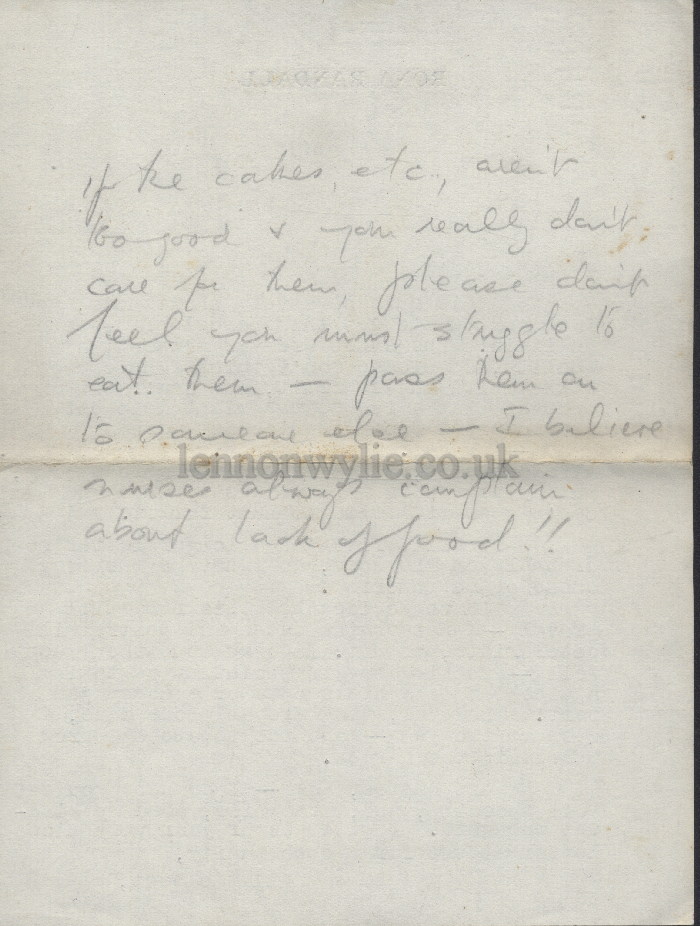 RONA RANDALL
If the cakes, etc., aren't
too good & you really don't
care for them, please don't
feel you must struggle to
eat them — pass them on
to someone else — I believe
lennonwylie.co.uk
nurses always complain
about lack of food!!